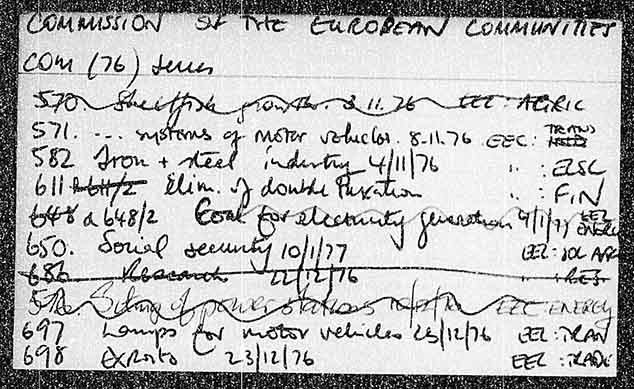 COMMISSION OF THE EUROPEAN COMMUNITIES
COM (76) series
570. Shellfish 8.11.76 EEC: AGRIC
571. ... systems of motor vehicles. 8.11.76 EEC: TRANS
582 Iron + steel industry 4/11/76 " : ECSC
611 611/2 Elim. of double taxation " : FIN
648 a 648/2 Coal for electricity generation 4/1/77 EEC ENERGY
650. Social security 10/1/77 EEC: SOC AFF
686 Research 22/12/76 " : RES.
Siting of power stations EEC ENERGY
697 Lamps for motor vehicles 23/12/76 EEC: TRAN
698 Exports 23/12/76 EEC: TRADE